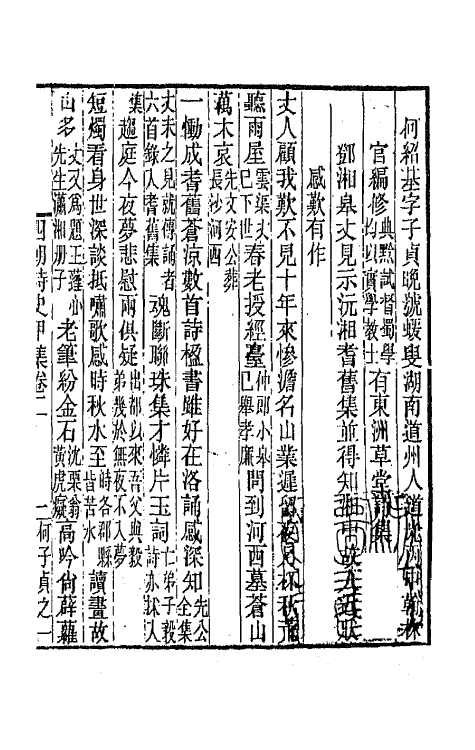 何紹基字子貞晚號蝯叟湖南道州人道光丙申翰林
官編修典黔試督蜀學均以實學教士有東洲草堂詩集
鄧湘皋丈見示沅湘耆舊集並得知湘中故人近狀
感歎有作
丈人顧我歎不見十年來慘澹名山業遲留夜月杯秋荒
聽雨屋雲渠丈已下世春老授經臺仲郎小皋已舉孝廉問到河西墓蒼山
萬木哀先文安公葬長沙河西
一慟成耆舊蒼涼數首詩楹書雖好在洛誦感深知先公全集
丈未之見就傳誦者六首錄入耆舊集魂斷聯珠集才憐片玉詞亡弟子毅詩亦入
集趨庭今夜夢悲慰兩俱疑出都以來吾父與毅弟幾於無夜不入夢
短燭看身世深談抵嘯歌感時秋水至時各郡縣皆苦水讀畫故
山多丈又爲題王蓬心先生瀟湘册子老筆紛金石沈栗翁黃虎癡高吟尙薜蘿
四朝詩史甲集卷二 二何子貞之一